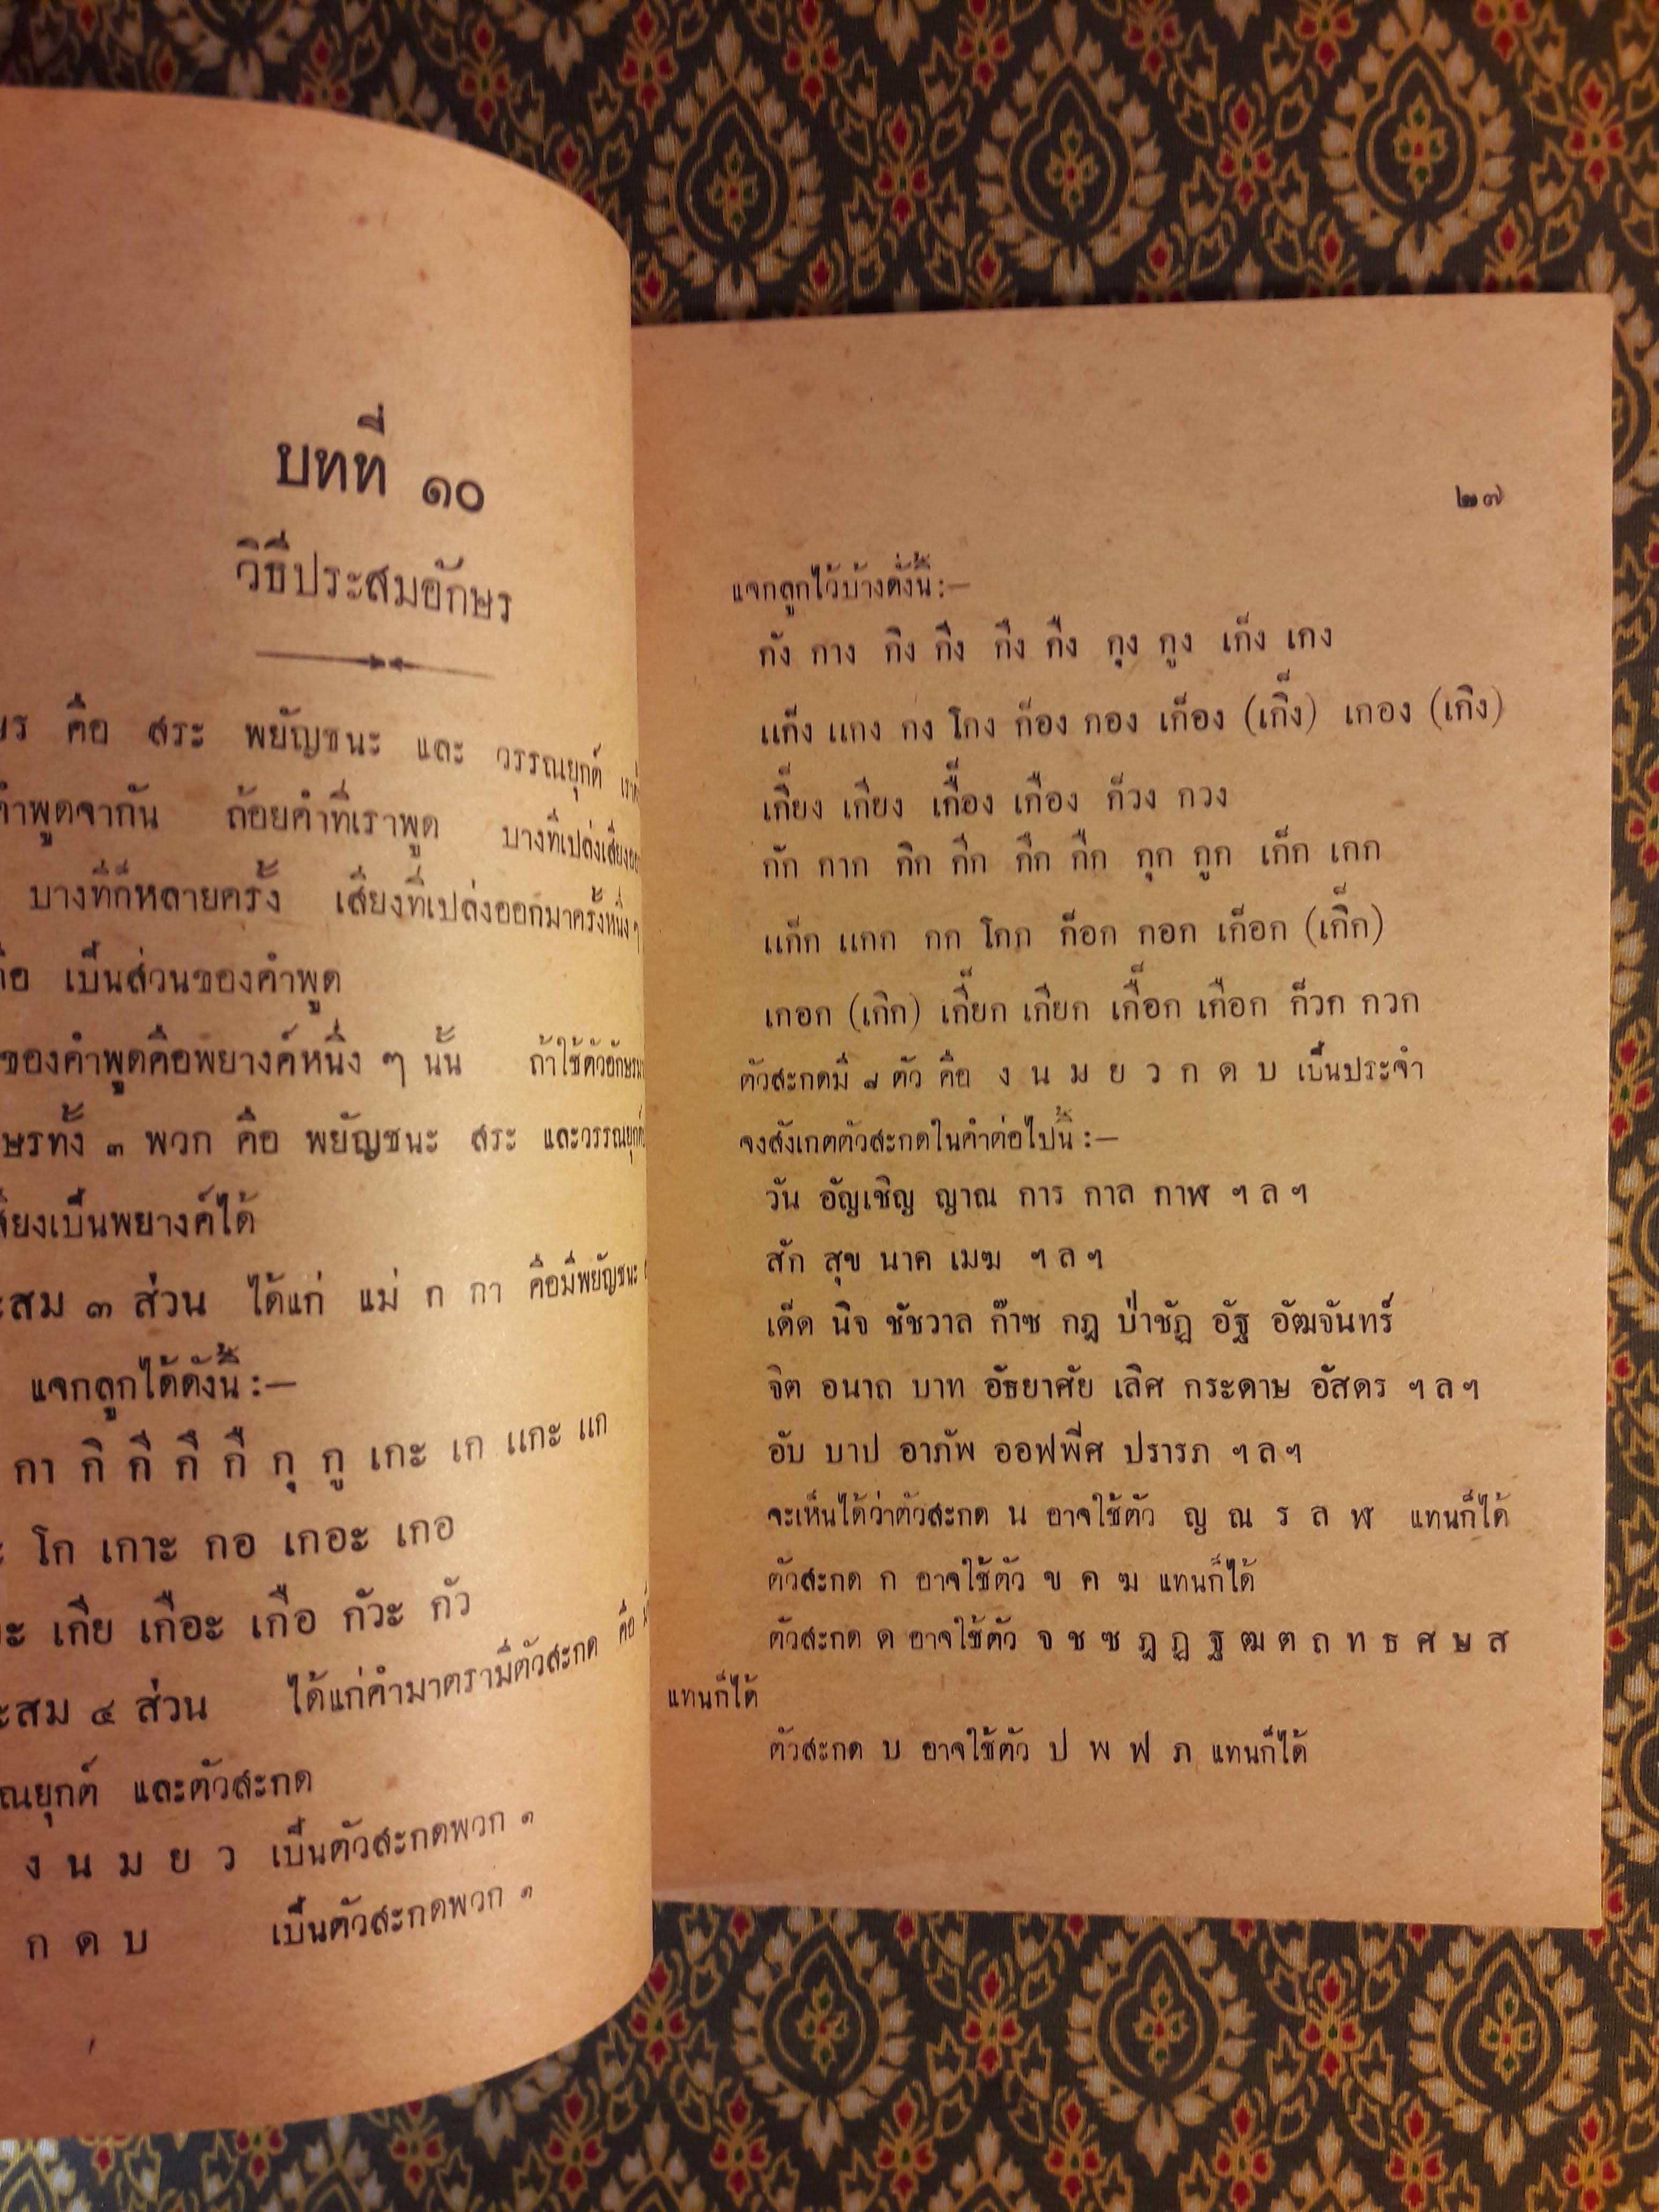 บทที่ ๑๐
วิธีประสมอักษร
คือ สระ พยัญชนะ และ วรรณยุกต์
คำพูดจากัน ถ้อยคำที่เราพูด บางทีเปล่งเสียง
บางทีก็หลายครั้ง เสียงที่เปล่งออกมาครั้งหนึ่ง ๆ
คือ เป็นส่วนของคำพูด
ของคำพูดคือพยางค์หนึ่ง ๆ นั้น ถ้าใช้ตัวอักษร
ษรทั้ง ๓ พวก คือ พยัญชนะ สระ และวรรณยุกต์
สียงเป็นพยางค์ได้
ะสม ๓ ส่วน ได้แก่ แม่ ก กา คือมีพยัญชนะ
แจกลูกได้ดังนี้ :—
กา กิ กี กึ กื กุ กู เกะ เก แกะ แก
โก เกาะ กอ เกอะ เกอ
ะ เกีย เกือะ เกือ กัวะ กัว
ะสม ๔ ส่วน ได้แก่คำมาตรามีตัวสะกด คือ
ณยุกต์ และตัวสะกด
ง น ม ย ว เป็นตัวสะกดพวก ๑
ก ด บ เป็นตัวสะกดพวก ๑
๒๗
แจกลูกไว้บ้างดั่งนี้ :—
กัง กาง กิง กีง กึง กืง กุง กูง เก็ง เกง
แก็ง แกง กง โกง ก็อง กอง เก็อง (เกิ็ง) เกอง (เกิง)
เกี็ยง เกียง เกื็อง เกือง ก็วง กวง
กัก กาก กิก กีก กึก กืก กุก กูก เก็ก เกก
แก็ก แกก กก โกก ก็อก กอก เก็อก (เกิ็ก)
เกอก (เกิก) เกี็ยก เกียก เกื็อก เกือก ก็วก กวก
ตัวสะกดมี ๘ ตัว คือ ง น ม ย ว ก ด บ เป็นประจำ
จงสังเกตตัวสะกดในคำต่อไปนี้ :—
วัน อัญเชิญ ญาณ การ กาล กาฬ ฯ ล ฯ
สัก สุข นาค เมฆ ฯ ล ฯ
เด็ด นิจ ชัชวาล ก๊าซ กฎ ป่าชัฏ อัฐ อัฒจันทร์
จิต อนาถ บาท อัธยาศัย เลิศ กระดาษ อัสดร ฯ ล ฯ
อับ บาป อาภัพ ออฟฟีศ ปรารภ ฯ ล ฯ
จะเห็นได้ว่าตัวสะกด น อาจใช้ตัว ญ ณ ร ล ฬ แทนก็ได้
ตัวสะกด ก อาจใช้ตัว ข ค ฆ แทนก็ได้
ตัวสะกด ด อาจใช้ตัว จ ช ซ ฎ ฏ ฐ ฒ ต ถ ท ธ ศ ษ ส
แทนก็ได้
ตัวสะกด บ อาจใช้ตัว ป พ ฟ ภ แทนก็ได้